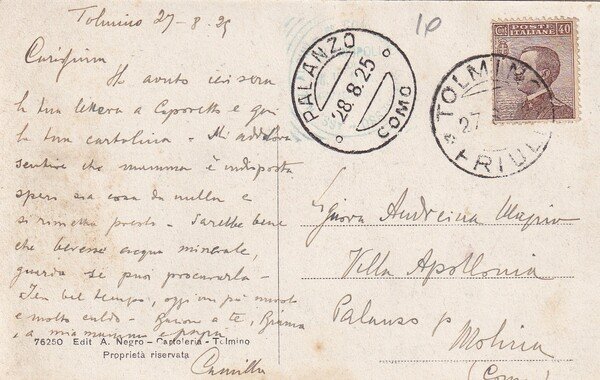 Tolmino 27-8.25
Carissima
Ho avuto ieri sera
la tua lettera a Caporetto e qui
la tua cartolina - Mi addolora
sentire che mamma è indisposta
spero sia cosa da nulla e
si rimetta presto - Sarebbe bene
che bevesse acqua minerale,
guarda se puoi procurarla -
Ieri bel tempo, oggi un pò
e molto caldo - Bacioni a te,
a mia mamma e papà
Camilla
76250 Edit A. Negro - Cartoleria - Tolmino
Proprietà riservata
PALANZO
28.8.25
COMO
10
POSTE
ITALIANE
Cent
40
TOLMINO
27
FRIULI
Signora Andreina
Villa Apollonia
Palanzo p
Molina
(Como